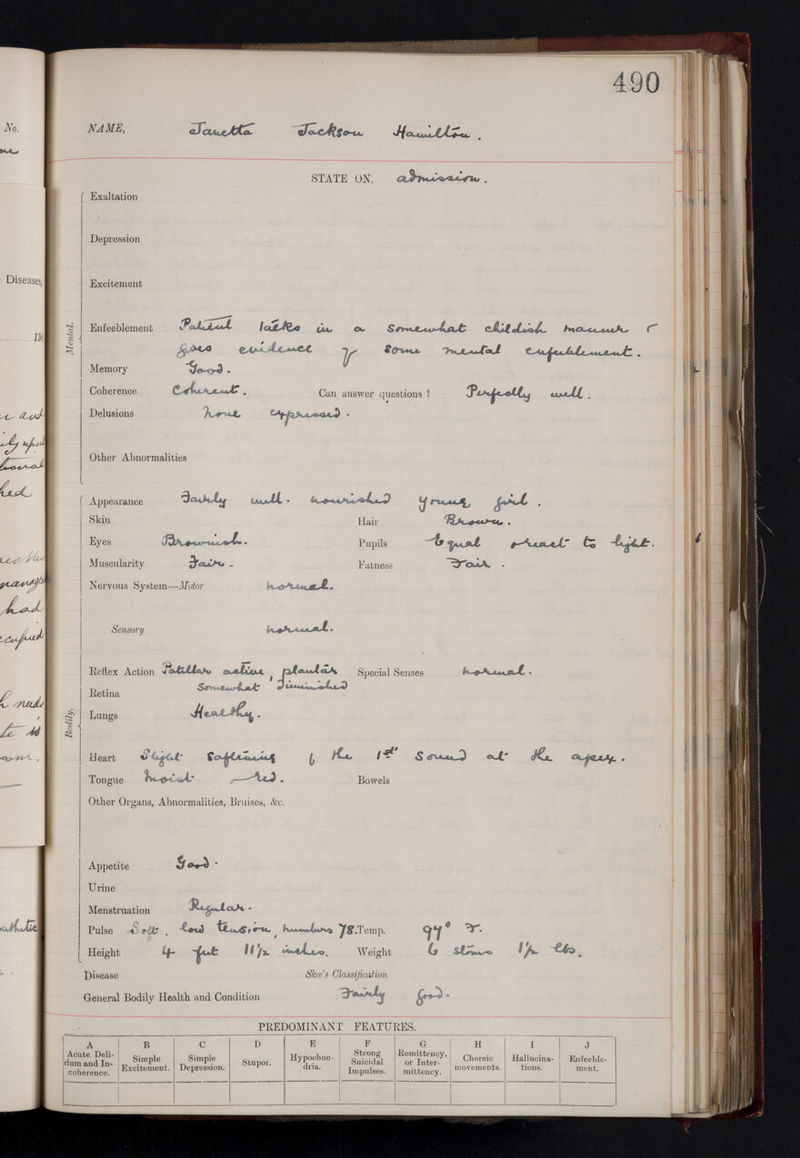 490
No.
NAME, Janetta Jackson Hamilton.
STATE ON, admission.
Exaltation
Depression
Diseases,
Excitement
Mental.
Enfeeblement Patient talks in a somewhat childish manner &
gives evidence of some mental enfeeblement.
Memory Good.
Coherence Coherent. Can answer questions ? Perfectly well.
Delusions none expressed.
Other Abnormalities
Appearance Fairly well-nourished young girl.
Skin Hair Brown.
Eyes Brownish. Pupils Equal & react to light.
Muscularity Fair. Fatness Fair.
Nervous System—Motor normal.
had
Sensory normal.
Reflex Action Patellar active, plantar Special Senses normal.
somewhat diminished
Retina
Bodily.
Lungs Healthy.
Heart Slight softening of the 1st sound at the apex.
Tongue moist & red. Bowels
Other Organs, Abnormalities, Bruises, &c.
Appetite Good.
Urine
Menstruation Regular.
Pulse Soft, low tension, numbers 78. Temp. 97° F.
Height 4 feet 11½ inches. Weight 6 stones 1½ lbs.
Disease Skae's Classification
General Bodily Health and Condition Fairly good.
PREDOMINANT FEATURES.
A B C D E F G H I J
Acute Delirium and Incoherence. Simple Excitement. Simple Depression. Stupor. Hypochondria. Strong Suicidal Impulses. Remittency, or Intermittency. Choreic movements. Hallucinations. Enfeeblement.